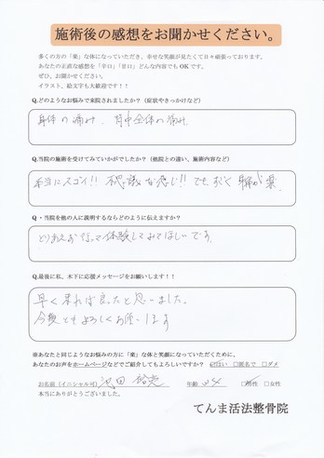 施術後の感想をお聞かせください。
多くの方の「楽」な体になっていただき、幸せな笑顔が見たくて日々頑張っております。
あなたの正直な感想を「辛口」「甘口」どんな内容でも OK です。
ぜひ、お聞かせください。
イラスト、絵文字も大歓迎です！
Q.どのようなお悩みで来院されましたか？（症状やきっかけなど）
身体の痛み、背中全体の痛み
Q.当院の施術を受けてみていかがでしたか？（他院との違い、施術内容など）
本当にスゴイ!! 不思議な感じ!! でもすごく 身体が楽
Q.・当院を他の人に説明するならどのように伝えますか？
とりあえず 体験してみてほしいです
Q.最後に私、木下に応援メッセージをお願いします！！
早く来れば良かったと思いました。
今後ともよろしくお願いします
※あなたと同じようなお悩みの方に「楽」な体と笑顔になっていただくために、
あなたのお声をホームページなどでご紹介してもよろしいですか？ ☑はい □匿名で □ダメ
お名前（イニシャル可） 池田 年齢 24 ☑男性 □女性
本当にありがとうございました。
てんま活法整骨院